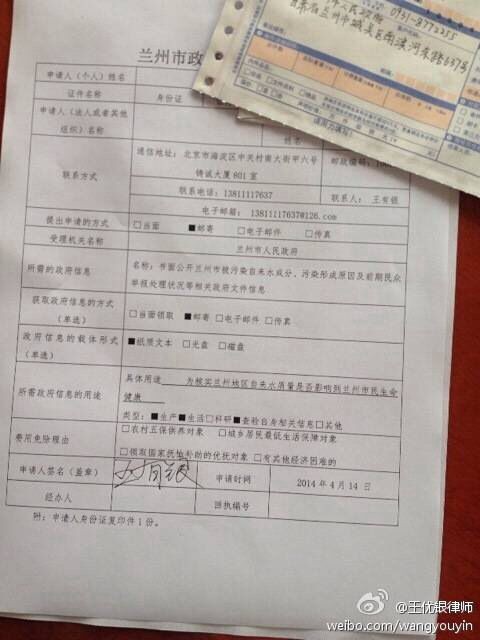 0931-8772255
甘肃省兰州市城关区南滨河东路637号
兰州市政
申请人（个人）姓名
证件名称 身份证
申请人（法人或者其他
组织）名称
姓名
联系方式
通信地址：北京市海淀区中关村南大街甲六号
铸诚大厦801室
邮政编
联系电话：13811117637
联系人：王有银
电子邮箱：13811117637@126.com
提出申请的方式 □当面 ■邮寄 □电子邮件 □传真
受理机关名称 兰州市人民政府
所需的政府信息
名称：书面公开兰州市被污染自来水成分、污染形成原因及前期民众
举报处理状况等相关政府文件信息
获取政府信息的方式
（单选）
□当面领取 ■邮寄 □电子邮件 □传真
政府信息的载体形式
（单选）
■纸质文本 □光盘 □磁盘
所需政府信息的用途
具体用途 为核实兰州地区自来水质量是否影响到兰州市民生命
健康
类型：■生产■生活□科研■查验自身相关信息□其他
费用免除理由
□农村五保供养对象 □城乡居民最低生活保障对象
□领取国家抚恤补助的优抚对象 □有其他经济困难的
申请人签名（盖章） 申请时间 2014年4月14日
经办人 回执编号
附：申请人身份证复印件1份。
@王优银律师
weibo.com/wangyouyin